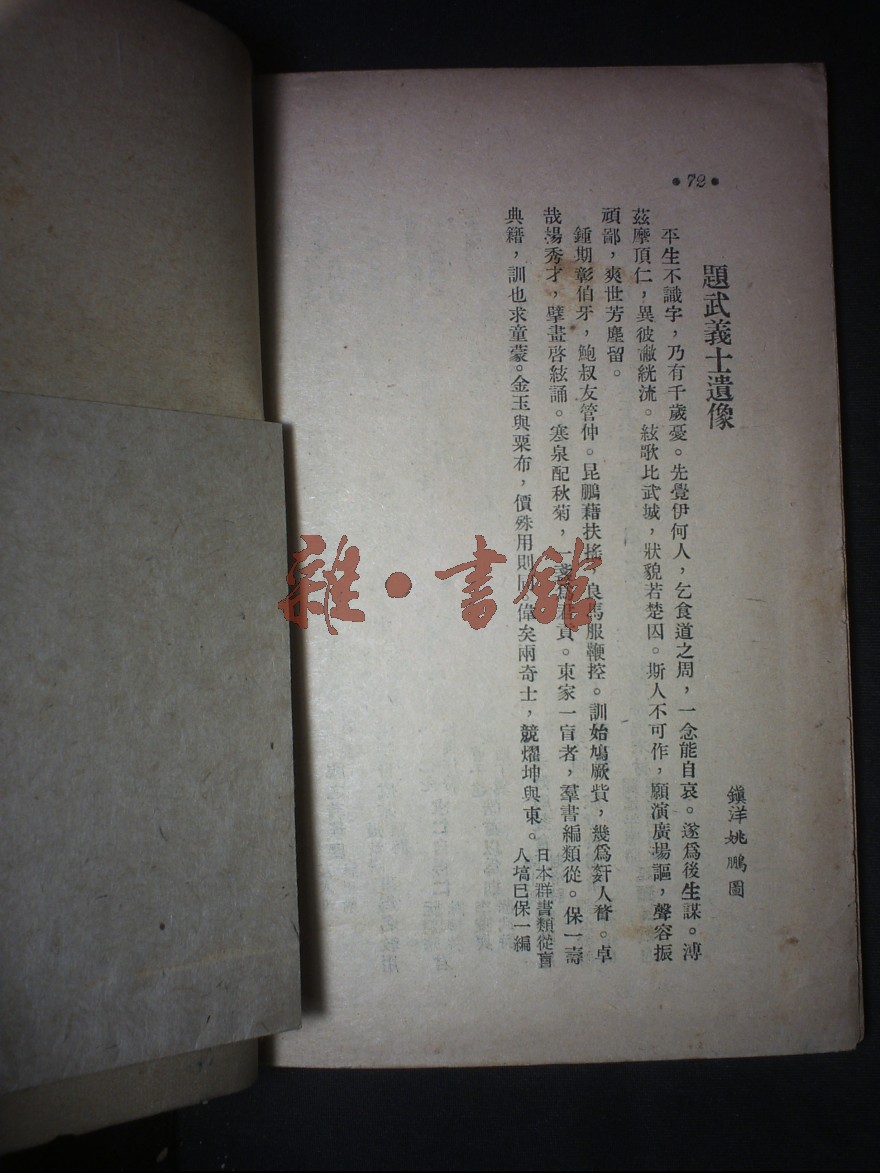 •72•
題武義士遺像
鎭洋姚鵬圖
平生不識字，乃有千歲憂。先覺伊何人，乞食道之周，一念能自哀。遂爲後生謀。溥
茲摩頂仁，異彼黻絖流。絃歌比武城，狀貌若楚囚。斯人不可作，願演廣場謳，聲容振
頑鄙，爽世芳塵留。
鍾期彰伯牙，鮑叔友管仲。昆鵬藉扶搖，良馬服鞭控。訓始鳩厥貲，幾爲奸人瞀。卓
哉揚秀才，擘畫啓絃誦。寒泉配秋菊，一
君貢。東家一盲者，羣書編類從。保一壽
典籍，訓也求童蒙。金玉與粟布，價殊用則
偉矣兩奇士，競燿坤與東。
日本群書類從盲
人塙已保一編
雜·書館